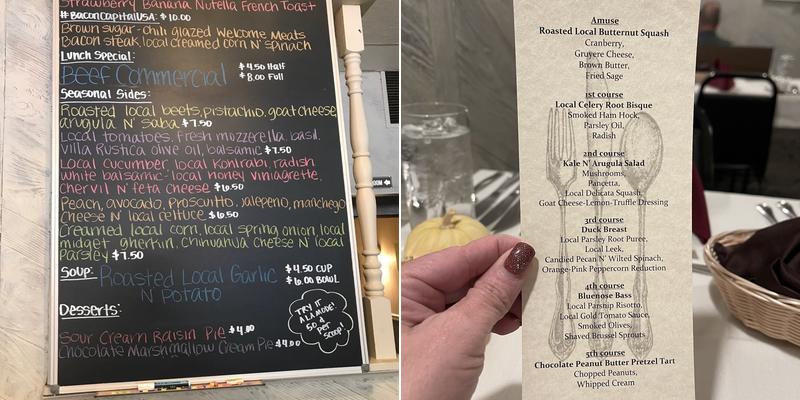 Strawberry Banana Nutella French Toast
#BaconCapitalUSA: $10.00
Brown sugar-chili glazed Welcome Meats
Bacon steak, local creamed corn N' spinach
Lunch Special:
Beef Commercial $4.50 Half
$8.00 Full
Seasonal Sides:
Roasted local beets, pistachio, goat cheese,
arugula N' saba $7.50
Local tomatoes, fresh mozzerella, basil,
Villa Rustica olive oil, balsamic $7.50
Local cucumber, local Kohlrabi, radish
white balsamic-local honey vinaigrette,
chervil N' feta cheese $6.50
Peach, avocado, Proscuitto, jalepeno, manchego
cheese N' local lettuce $6.50
Creamed local corn, local spring onion, local
midget gherkin, Chihuahua cheese N' local
Parsley $7.50
Soup: Roasted Local Garlic $4.50 CUP
N Potato $6.00 BOWL
Desserts:
TRY IT
ALAMODE!
50¢
per
scoop!
Sour Cream Raisin Pie $4.00
Chocolate Marshmallow Cream Pie $4.00
Amuse
Roasted Local Butternut Squash
Cranberry,
Gruyere Cheese,
Brown Butter,
Fried Sage
1st course
Local Celery Root Bisque
Smoked Ham Hock,
Parsley Oil,
Radish
2nd course
Kale N' Arugula Salad
Mushrooms,
Pancetta,
Local Delicata Squash,
Goat Cheese-Lemon-Truffle Dressing
3rd course
Duck Breast
Local Parsley Root Puree,
Local Leek,
Candied Pecan N' Wilted Spinach,
Orange-Pink Peppercorn Reduction
4th course
Bluenose Bass
Local Parsnip Risotto,
Local Gold Tomato Sauce,
Smoked Olives,
Shaved Brussel Sprouts
5th course
Chocolate Peanut Butter Pretzel Tart
Chopped Peanuts,
Whipped Cream